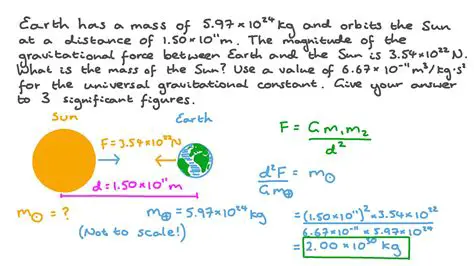 Earth has a mass of 5.97×10²⁴ kg and orbits the Sun
at a distance of 1.50×10¹¹m. The magnitude of the
gravitational force between Earth and the Sun is 3.54×10²²N.
What is the mass of the Sun? Use a value of 6.67×10⁻¹¹m³/kg·s²
for the universal gravitational constant. Give your answer
to 3 significant figures.
Sun
Earth
F=3.54×10²²N
d=1.50×10¹¹m
m☉ = ?
m⊕ = 5.97×10²⁴ kg
(Not to scale!)
F = G m₁m₂ / d²
d²F / Gm⊕ = m☉
= (1.50×10¹¹)² × 3.54×10²² / 6.67×10⁻¹¹ × 5.97×10²⁴
= 2.00 ×10³⁰ kg